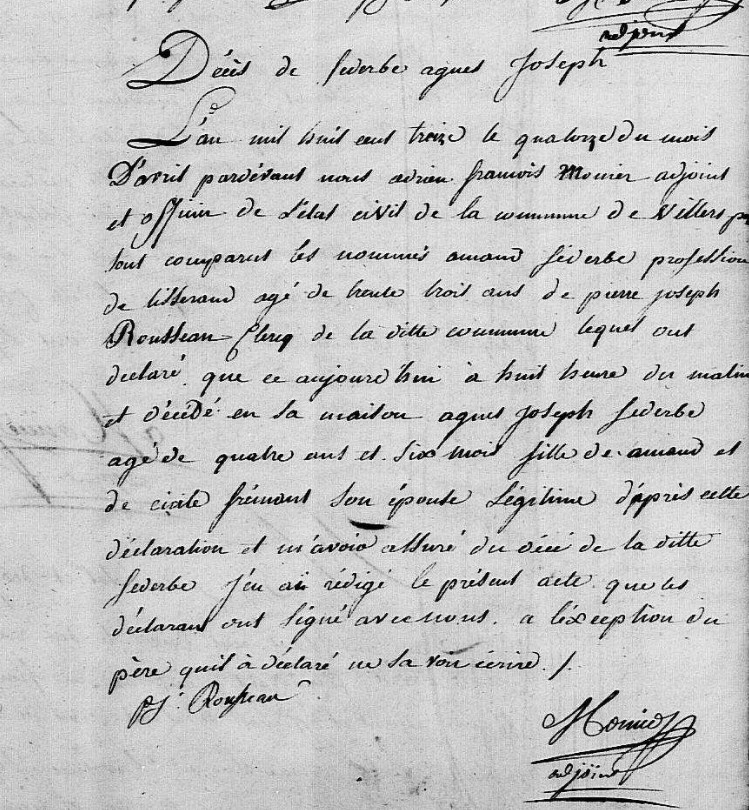 adjoint
Décès de federbe agnes Joseph
L'an mil huit cent treize le quatorze du mois
D'avril pardévant nous adrien francois Monier adjoint
et officier de L'état civil de la commune de Villers
sont comparut les nommés amand féderbe profession
de tisserand agé de trente trois ans de pierre joseph
Rousseau Clerq de la ditte commune lequel ont
declaré que ce aujourd'hui à huit heure du matin
et décédé en sa maison agnes Joseph federbe
agé de quatre ans et six mois fille de amand et
de cicile frémont son épouse Légitime d'après cette
déclaration et m'avoir assuré du décé de la ditte
federbe j'en ai rédigé le présent acte que les
déclarant ont signé avec nous a l'éxception du
père quit à déclaré ne sa voir écrire ./.
pj. Rousseau
Monier
adjoint